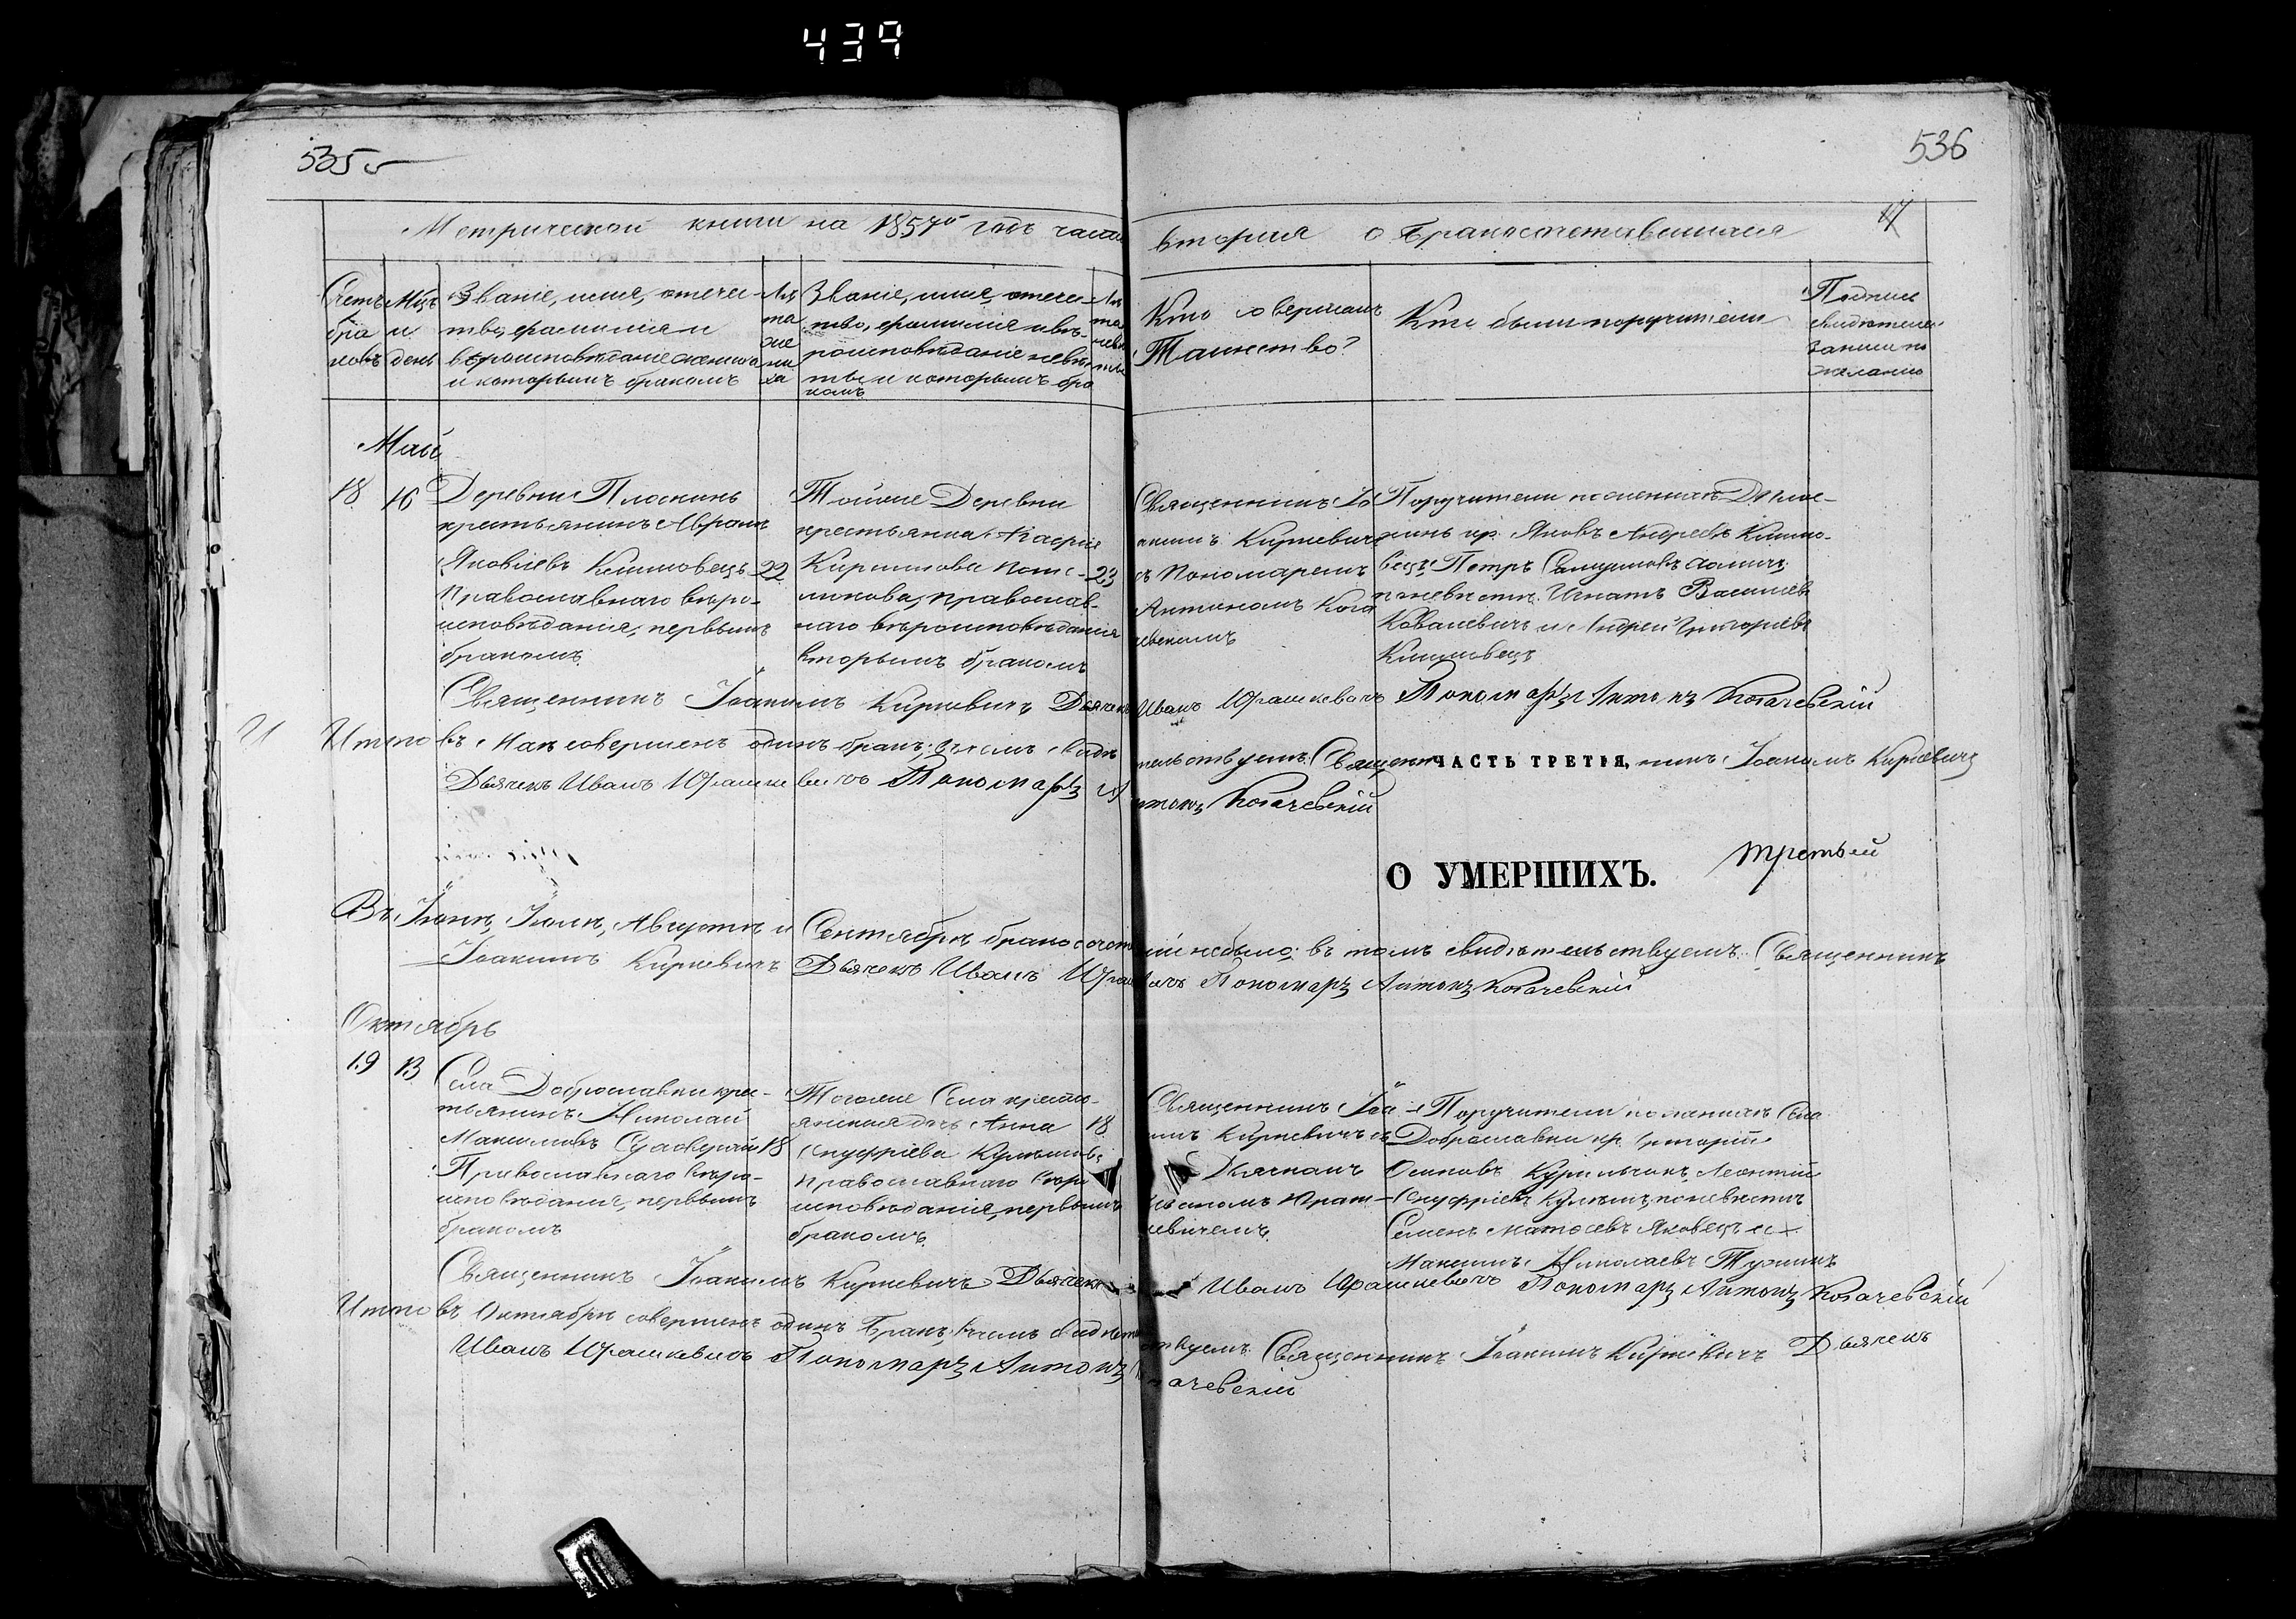 439
535
536
Метрической книги на 1857й годъ часть вторая о бракосочетавшихся
Счетъ браковъ
Мцъ и день
Званіе, имя, отечество, фамилія и вѣроисповѣданіе жениха и которымъ бракомъ
Лѣта жениха
Званіе, имя, отечество, фамилія и вѣроисповѣданіе невѣсты и которымъ бракомъ
Лѣта невѣсты
Кто совершалъ Таинство?
Кто были поручители
Подпись свидѣтелей записи по желанію
Май
18 16
Деревни Плоскинь
крестьянинъ Авраам
Яковлевъ Климовецъ 22
Православнаго вѣро-
исповѣданія, первымъ
бракомъ
Тойже Деревни
крестьянка
Кирилова 23
православ-
наго вѣроисповѣданія
вторымъ бракомъ
Священникъ Іо
акимъ Киркевичъ
съ Пономаремъ
Антономъ Кога
чевскимъ
Поручители по женихѣ Д. Плос-
кинь кр. Яковъ Андреевъ Климо-
вецъ и Петръ
по невѣстѣ Игнатъ Васильевъ
Ковалевичъ и Андрей Григорьевъ
Климовецъ
Священникъ Іоакимъ Киркевичъ Дьячекъ Иванъ Юрашкевичъ Пономаръ Антонъ Когачевскій
Итого въ Маѣ совершенъ одинъ бракъ; въ чемъ свидѣтельствуемъ: Священникъ Іоакимъ Киркевичъ
ЧАСТЬ ТРЕТІЯ,
Дьячекъ Иванъ Юрашкевичъ Пономаръ Антонъ Когачевскій
О УМЕРШИХЪ.
третьей
Въ Іюнѣ, Іюлѣ, Августѣ и Сентябрѣ бракосочетаній небыло; въ томъ свидѣтельствуемъ: Священникъ
Іоакимъ Киркевичъ Дьячекъ Иванъ Юрашкевичъ Пономаръ Антонъ Когачевскій
Октябрь
19 13
Села Доброславки крес-
тьянинъ Николай
Максимовъ 18
Православнаго вѣро-
исповѣданія, первымъ
бракомъ
Тогоже Села кресть-
янская дочь Анна 18
Онуфріева
православнаго вѣро
исповѣданія, первымъ
бракомъ
Священникъ Іоа
кимъ Киркевичъ съ
Дьячкомъ
Иваномъ Юраш-
кевичемъ
Поручители по женихѣ Села
Доброславки кр. Григорій
Осиповъ Леонтій
Онуфріевъ по невѣстѣ
Семенъ Матѳеевъ Яковецъ и
Максимъ Николаевъ
Священникъ Іоакимъ Киркевичъ Дьячекъ Иванъ Юрашкевичъ Пономаръ Антонъ Когачевскій
Итого въ Октябрѣ совершенъ одинъ Бракъ, въ чемъ свидѣтельствуемъ: Священникъ Іоакимъ Киркевичъ Дьячекъ
Иванъ Юрашкевичъ Пономаръ Антонъ Когачевскій